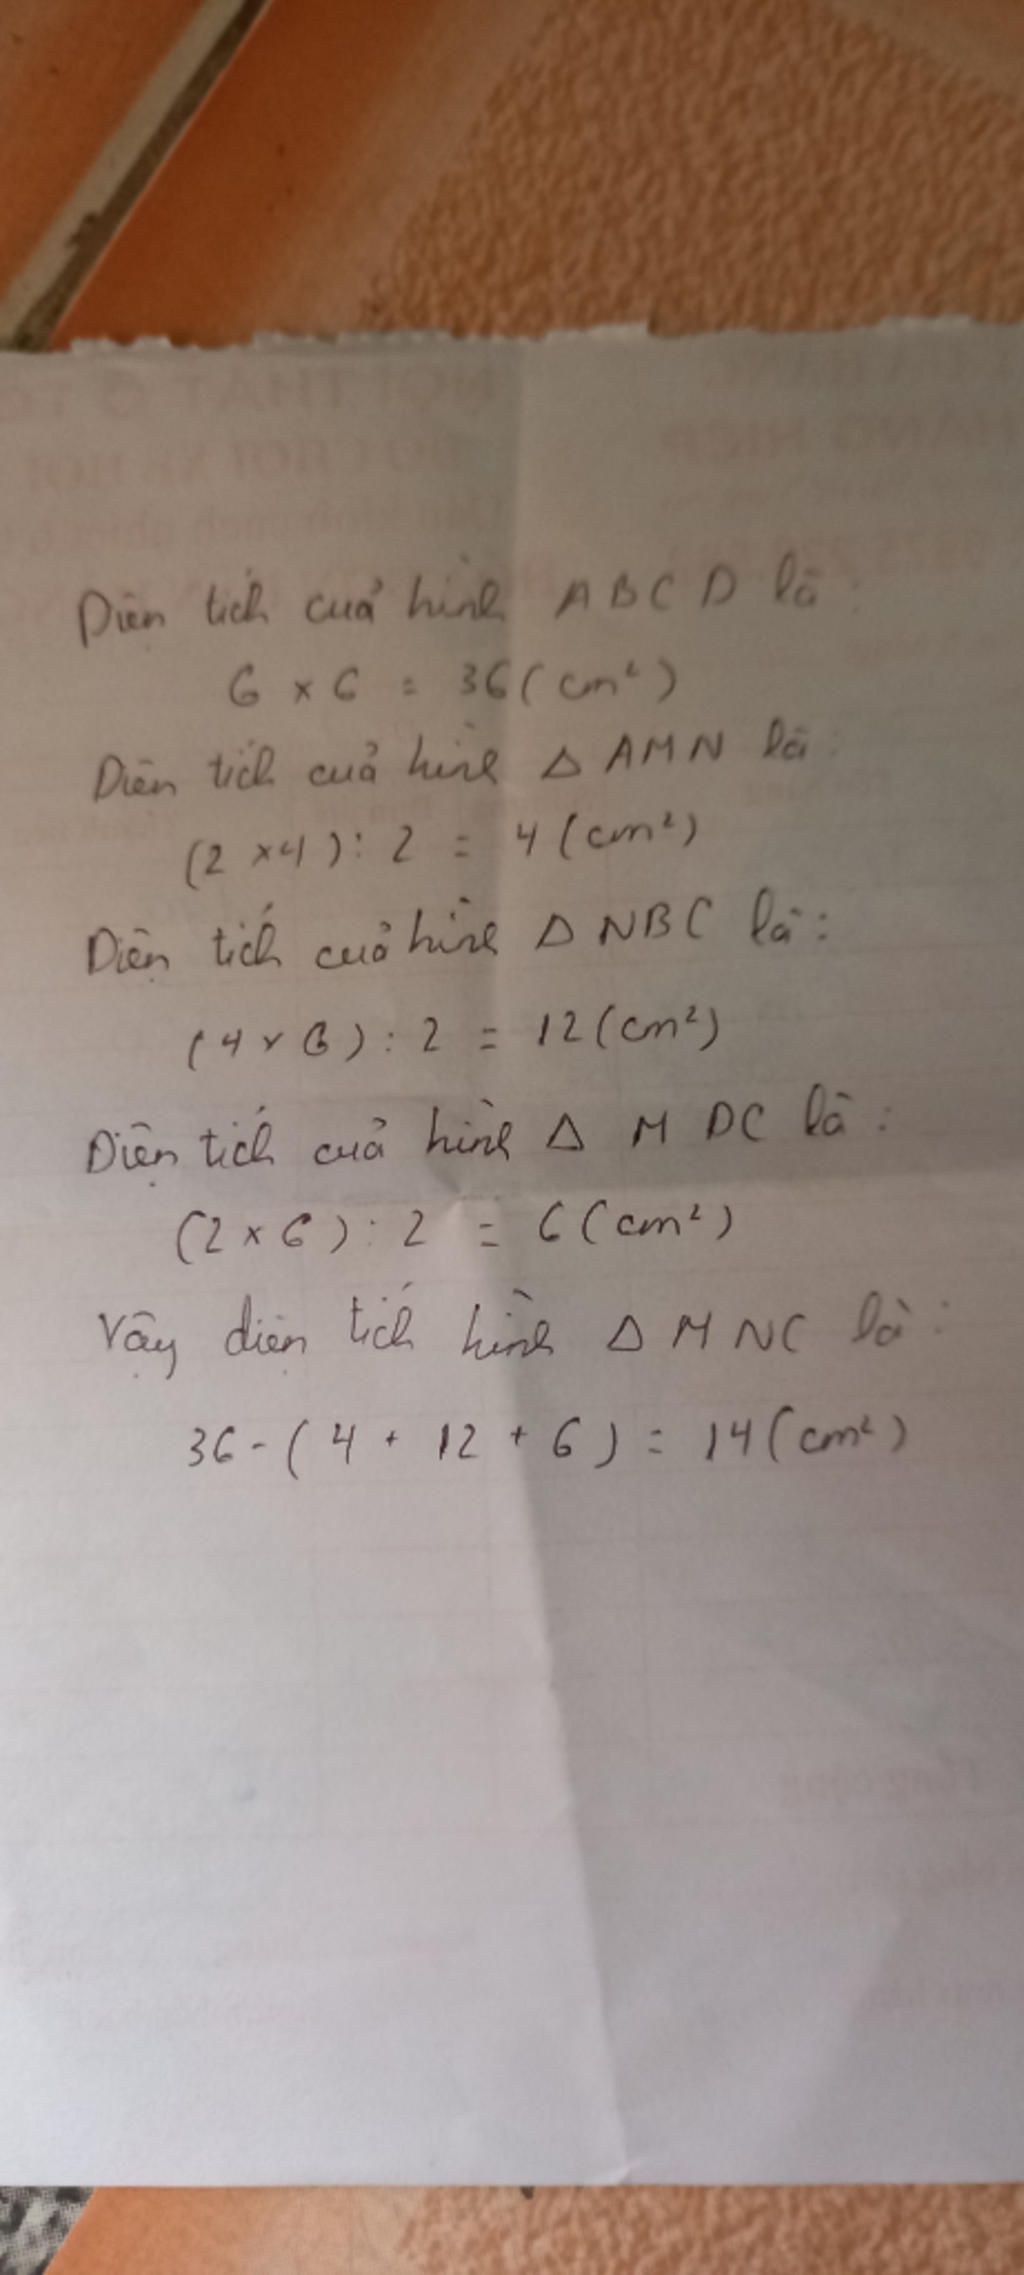 Diện tích cuả hình ABCD là:
6 x 6 = 36 (cm²)
Diện tích cuả hình Δ AMN là:
(2 x 4) : 2 = 4 (cm²)
Diện tích cuả hình Δ NBC là:
(4 x 6) : 2 = 12 (cm²)
Diện tích cuả hình Δ MDC là:
(2 x 6) : 2 = 6 (cm²)
Vậy diện tích hình Δ MNC là:
36 - (4 + 12 + 6) = 14 (cm²)